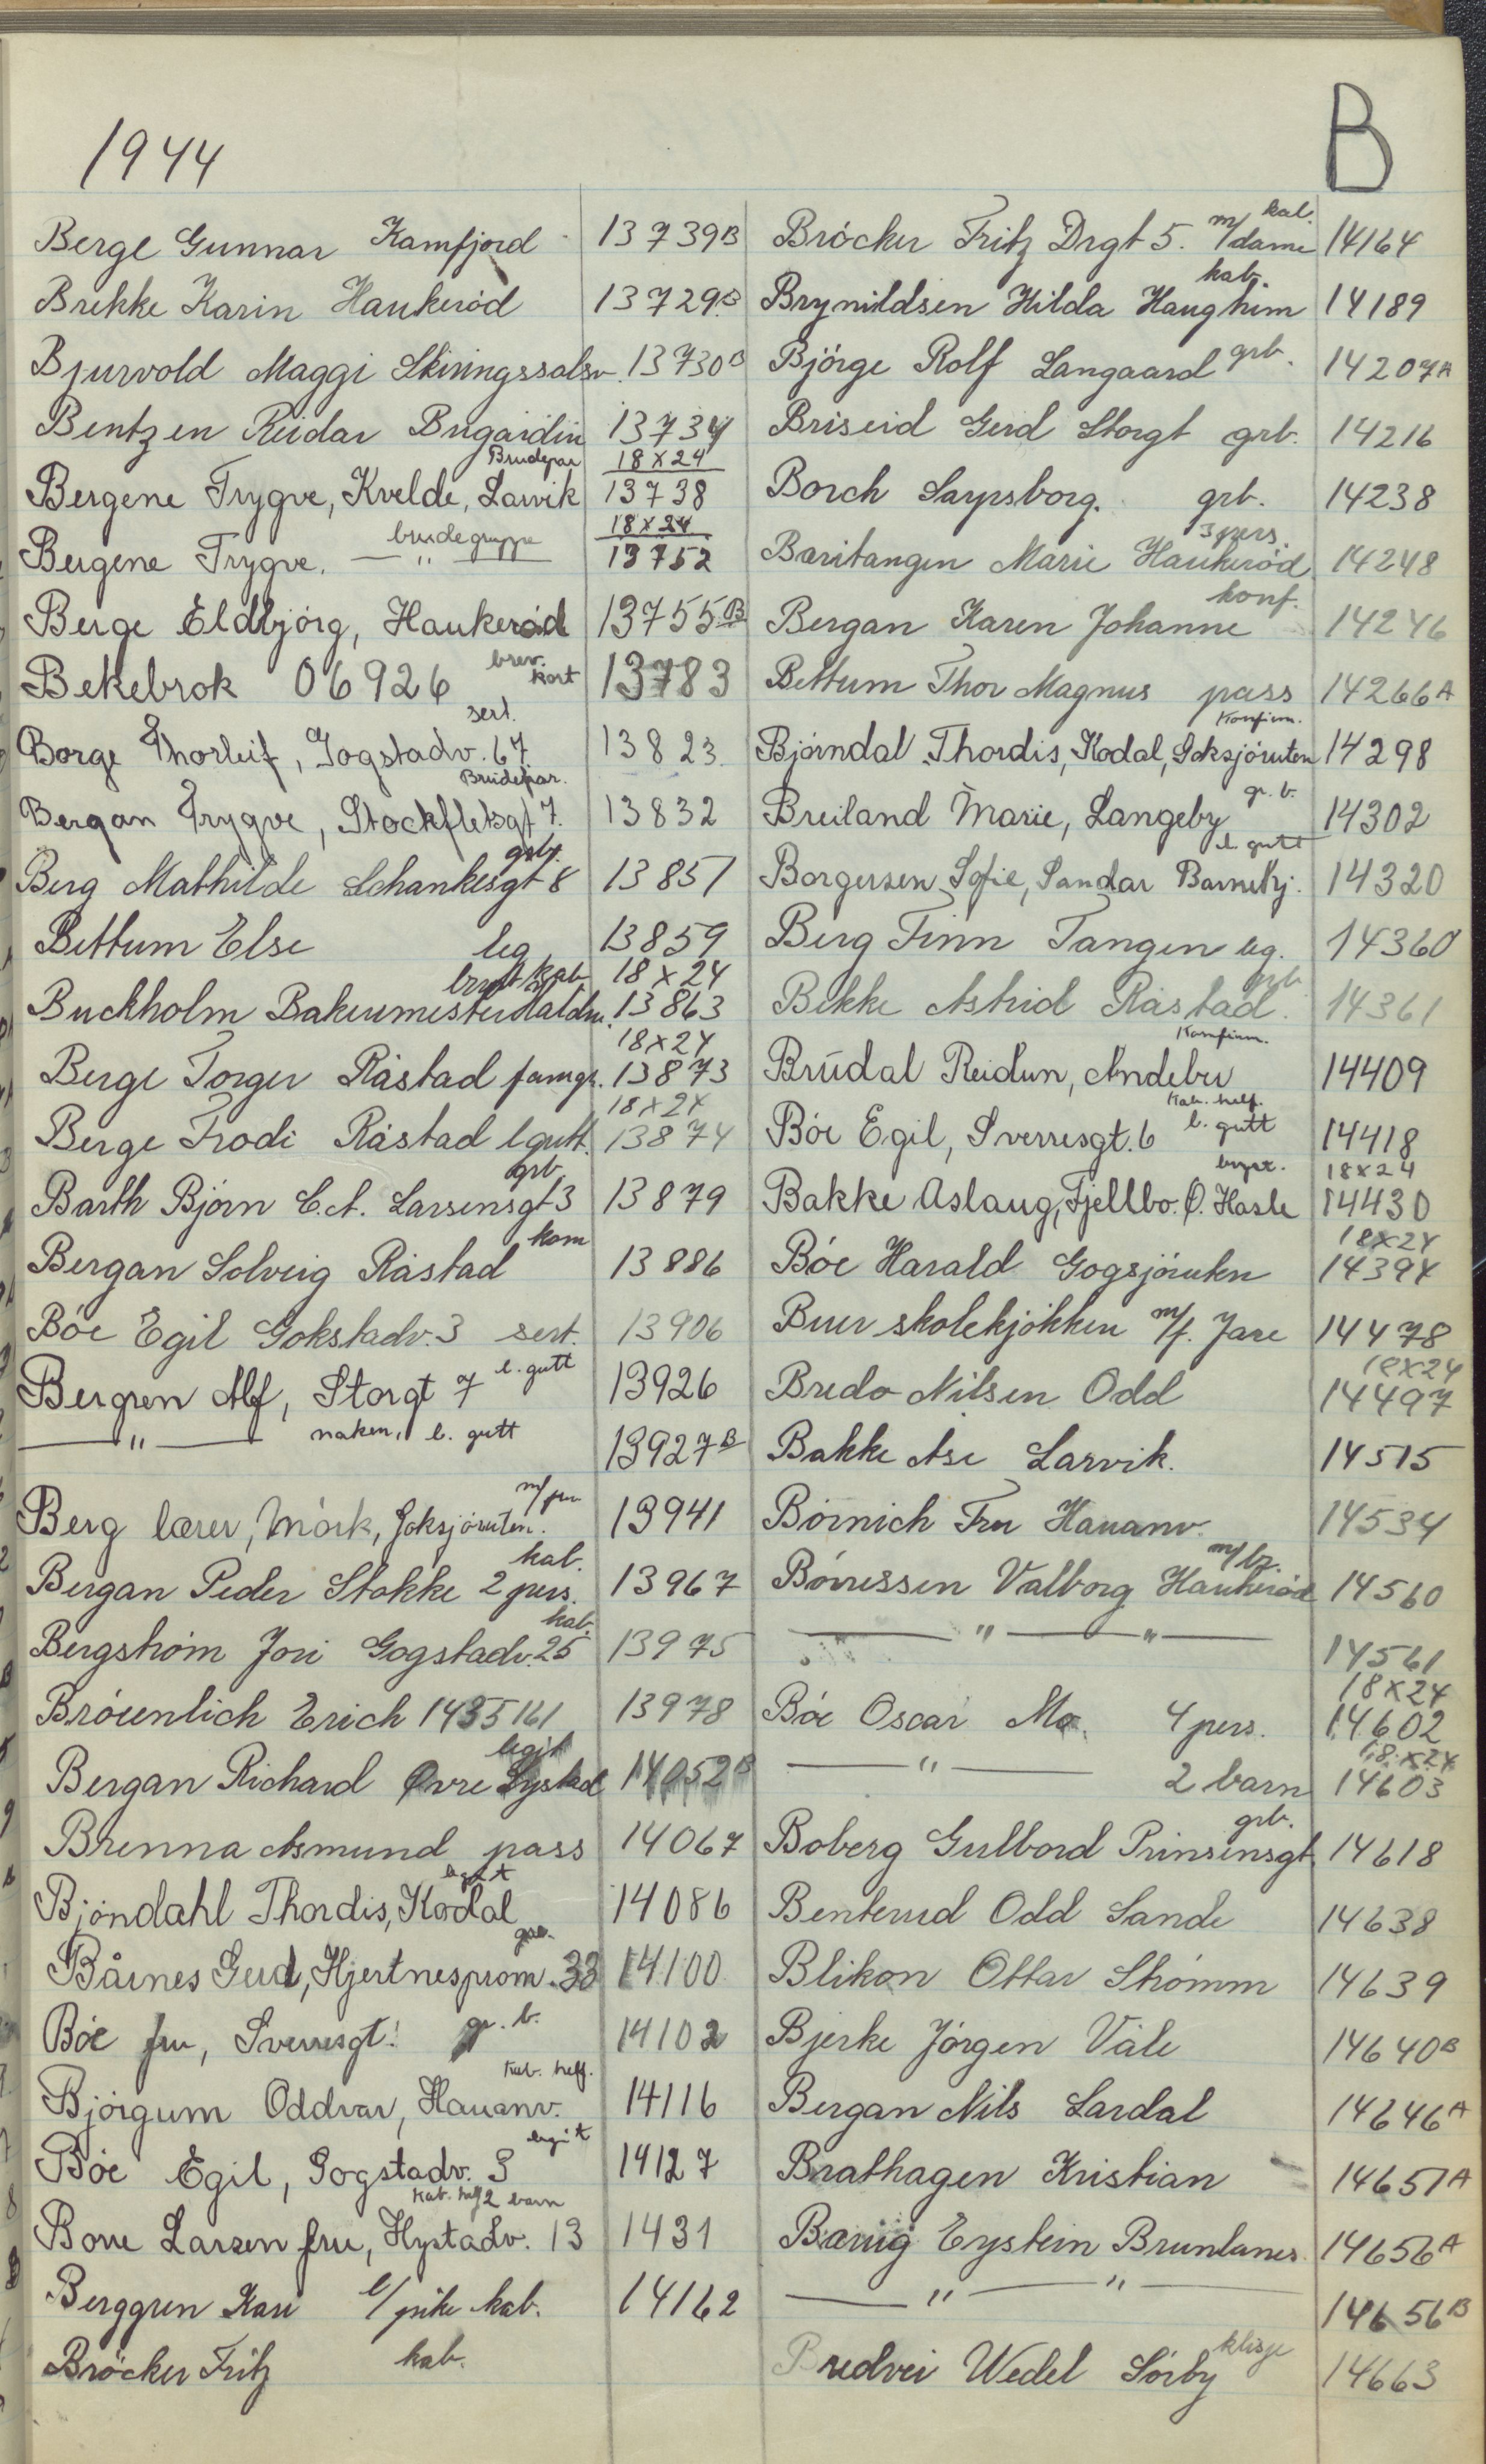 1944
B
Berge Gunnar Kamfjord 13739B
Brekke Karin Haukeröd 13729B
Bjurvold Maggi Skiringssalsv. 13730B
Bentzen Reidar Bugården 13734
Brudepar 18x24
Bergene Trygve, Kvelde, Larvik 13738
brudegruppe 18x24
Bergene Trygve. — " — 13752
Berge Eldbjörg, Haukeröd 13755B
Bekebrok 06926 brev.kort 13783
sert.
Borge Thorleif, Gogstadv. 67. 13823
Brudepar.
Bergan Trygve, Stockfletsgt 7. 13832
grb.
Berg Mathilde Schankesgt 8 13851
Bettum Else leg 13859
brud. kab 18x24
Buckholm Bakermester 13863
18x24
Berge Torger Råstad famgr. 13873
18x24
Berge Frodi Råstad l gutt. 13874
grb.
Barth Björn C.A. Larsensgt 3 13879
kom
Bergan Solveig Råstad 13886
Böe Egil Gokstadv. 3 sert. 13906
Bergren Alf, Storgt 7 l. gutt 13926
— " — naken, l. gutt 13927B
Berg lærer, Mörk, Goksjöruten. 13941
kab.
Bergan Peder Stokke 2 pers. 13967
kab.
Bergström Jori Gogstadv. 25 13975
Bröunlich Erich 1435161 13978
legit
Bergan Richard Övre Gystad 14052B
Brenna Asmund pass 14067
legit
Bjöndahl Thordis, Kodal 14086
Bårnes Gerd, Hjertnesprom. 33 14100
Böe fru, Sverresgt. gr. b. 14102
Kab. helf.
Björgum Oddvar, Hauanv. 14116
legit
Böe Egil, Gogstadv. 3 14127
Kab. helf 2 barn
Borre Larsen fru, Hystadv. 13 1431
Berggren Kari l/pike kab. 14162
Bröcker Fritz kab.
kab.
Bröcker Fritz Drgt 5. m/dame 14164
kab.
Brynildsen Hilda Haugheim 14189
Björge Rolf Langaard grb. 14207A
Briseid Gerd Storgt grb. 14216
Borch Sarpsborg. grb. 14238
3 pers.
Bæritangen Marie Haukeröd 14248
konf.
Bergan Karen Johanne 14246
Bettum Thor Magnus pass 14266A
Konfirm.
Björndal Thordis, Kodal, Goksjöruten 14298
Breiland Marie, Langeby gr. b. 14302
l. gutt
Borgersen Sofie, Sandar Barnehj. 14320
Berg Finn Tangen leg. 14360
grb
Bekke Astrid Råstad. 14361
Konfirm.
Brudal Reidun, Andebu 14409
Kab. helf.
Böe Egil, Sverresgt. 6 l. gutt 14418
18x24
Bakke Aslaug, Fjellbo. Ö. Hasle 14430
18x24
Böe Harald Gogsjöruten 14394
Buer skolekjökken m/f. Jare 14478
18x24
Bredo Nilsen Odd 14497
Bakke Åse Larvik. 14515
Börnich Fru Hauanv. 14534
Börressen Valborg Haukeröd 14560
— " — " — 14561
18x24
Böe Oscar Mo. 4 pers. 14602
18x24
— " — 2 barn 14603
grb.
Boberg Gulbord Prinsensgt 14618
Benterud Odd Sande 14638
Blikon Ottar Strömm 14639
Bjerke Jörgen Våle 14640B
Bergan Nils Lardal 14646A
Brathagen Kristian 14651A
Bærug Eystein Brunlanes. 14656A
— " — " — 14656B
klisje
Bredvei Wedel Sörby 14663